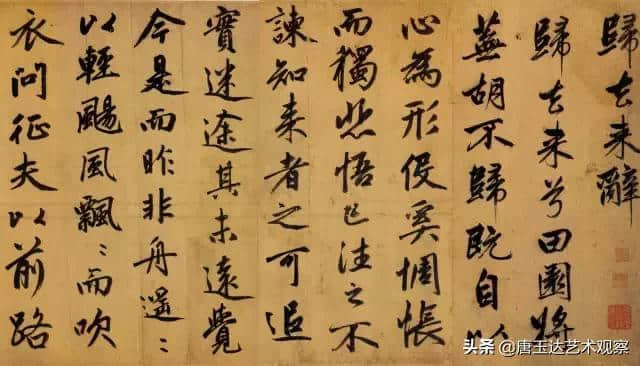 歸去来辭
歸去来兮田園將
蕪胡不歸既自以
心為形役奚惆悵
而獨悲悟已往之不
諫知来者之可追
實迷途其未遠覺
今是而昨非舟遥〻
以輕颺風飄〻而吹
衣問征夫以前路
头条 @唐玉达艺术观察